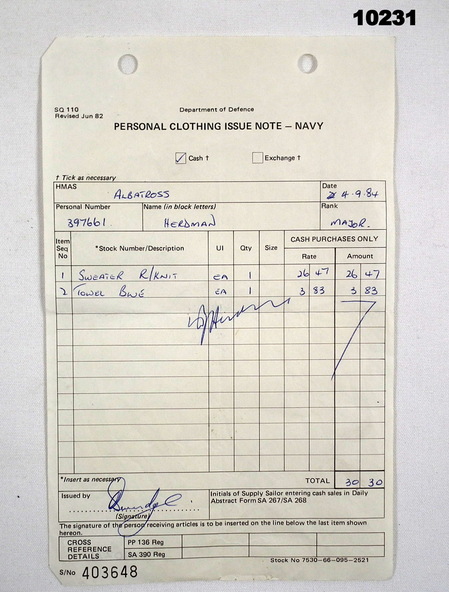 10231
SQ 110
Revised Jun 82
Department of Defence
PERSONAL CLOTHING ISSUE NOTE – NAVY
Cash †
Exchange †
† Tick as necessary
HMAS ALBATROSS Date 4.9.84
Personal Number Name (in block letters) Rank
397661. HERDMAN MAJOR.
Item Seq No *Stock Number/Description UI Qty Size CASH PURCHASES ONLY
Rate Amount
1 SWEATER R/KNIT EA 1 26 47 26 47
2 TOWEL BLUE EA 1 3 83 3 83
*Insert as necessary TOTAL 30 30
Issued by
(Signature)
Initials of Supply Sailor entering cash sales in Daily
Abstract Form SA 267/SA 268
The signature of the person receiving articles is to be inserted on the line below the last item shown
hereon.
CROSS REFERENCE DETAILS
PP 136 Reg
SA 390 Reg
Stock No 7530–66–095–2521
S/No 403648